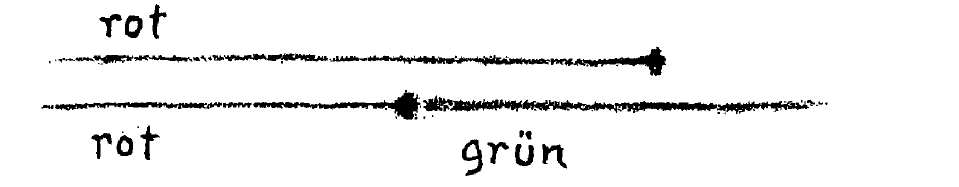 rot
rot grün